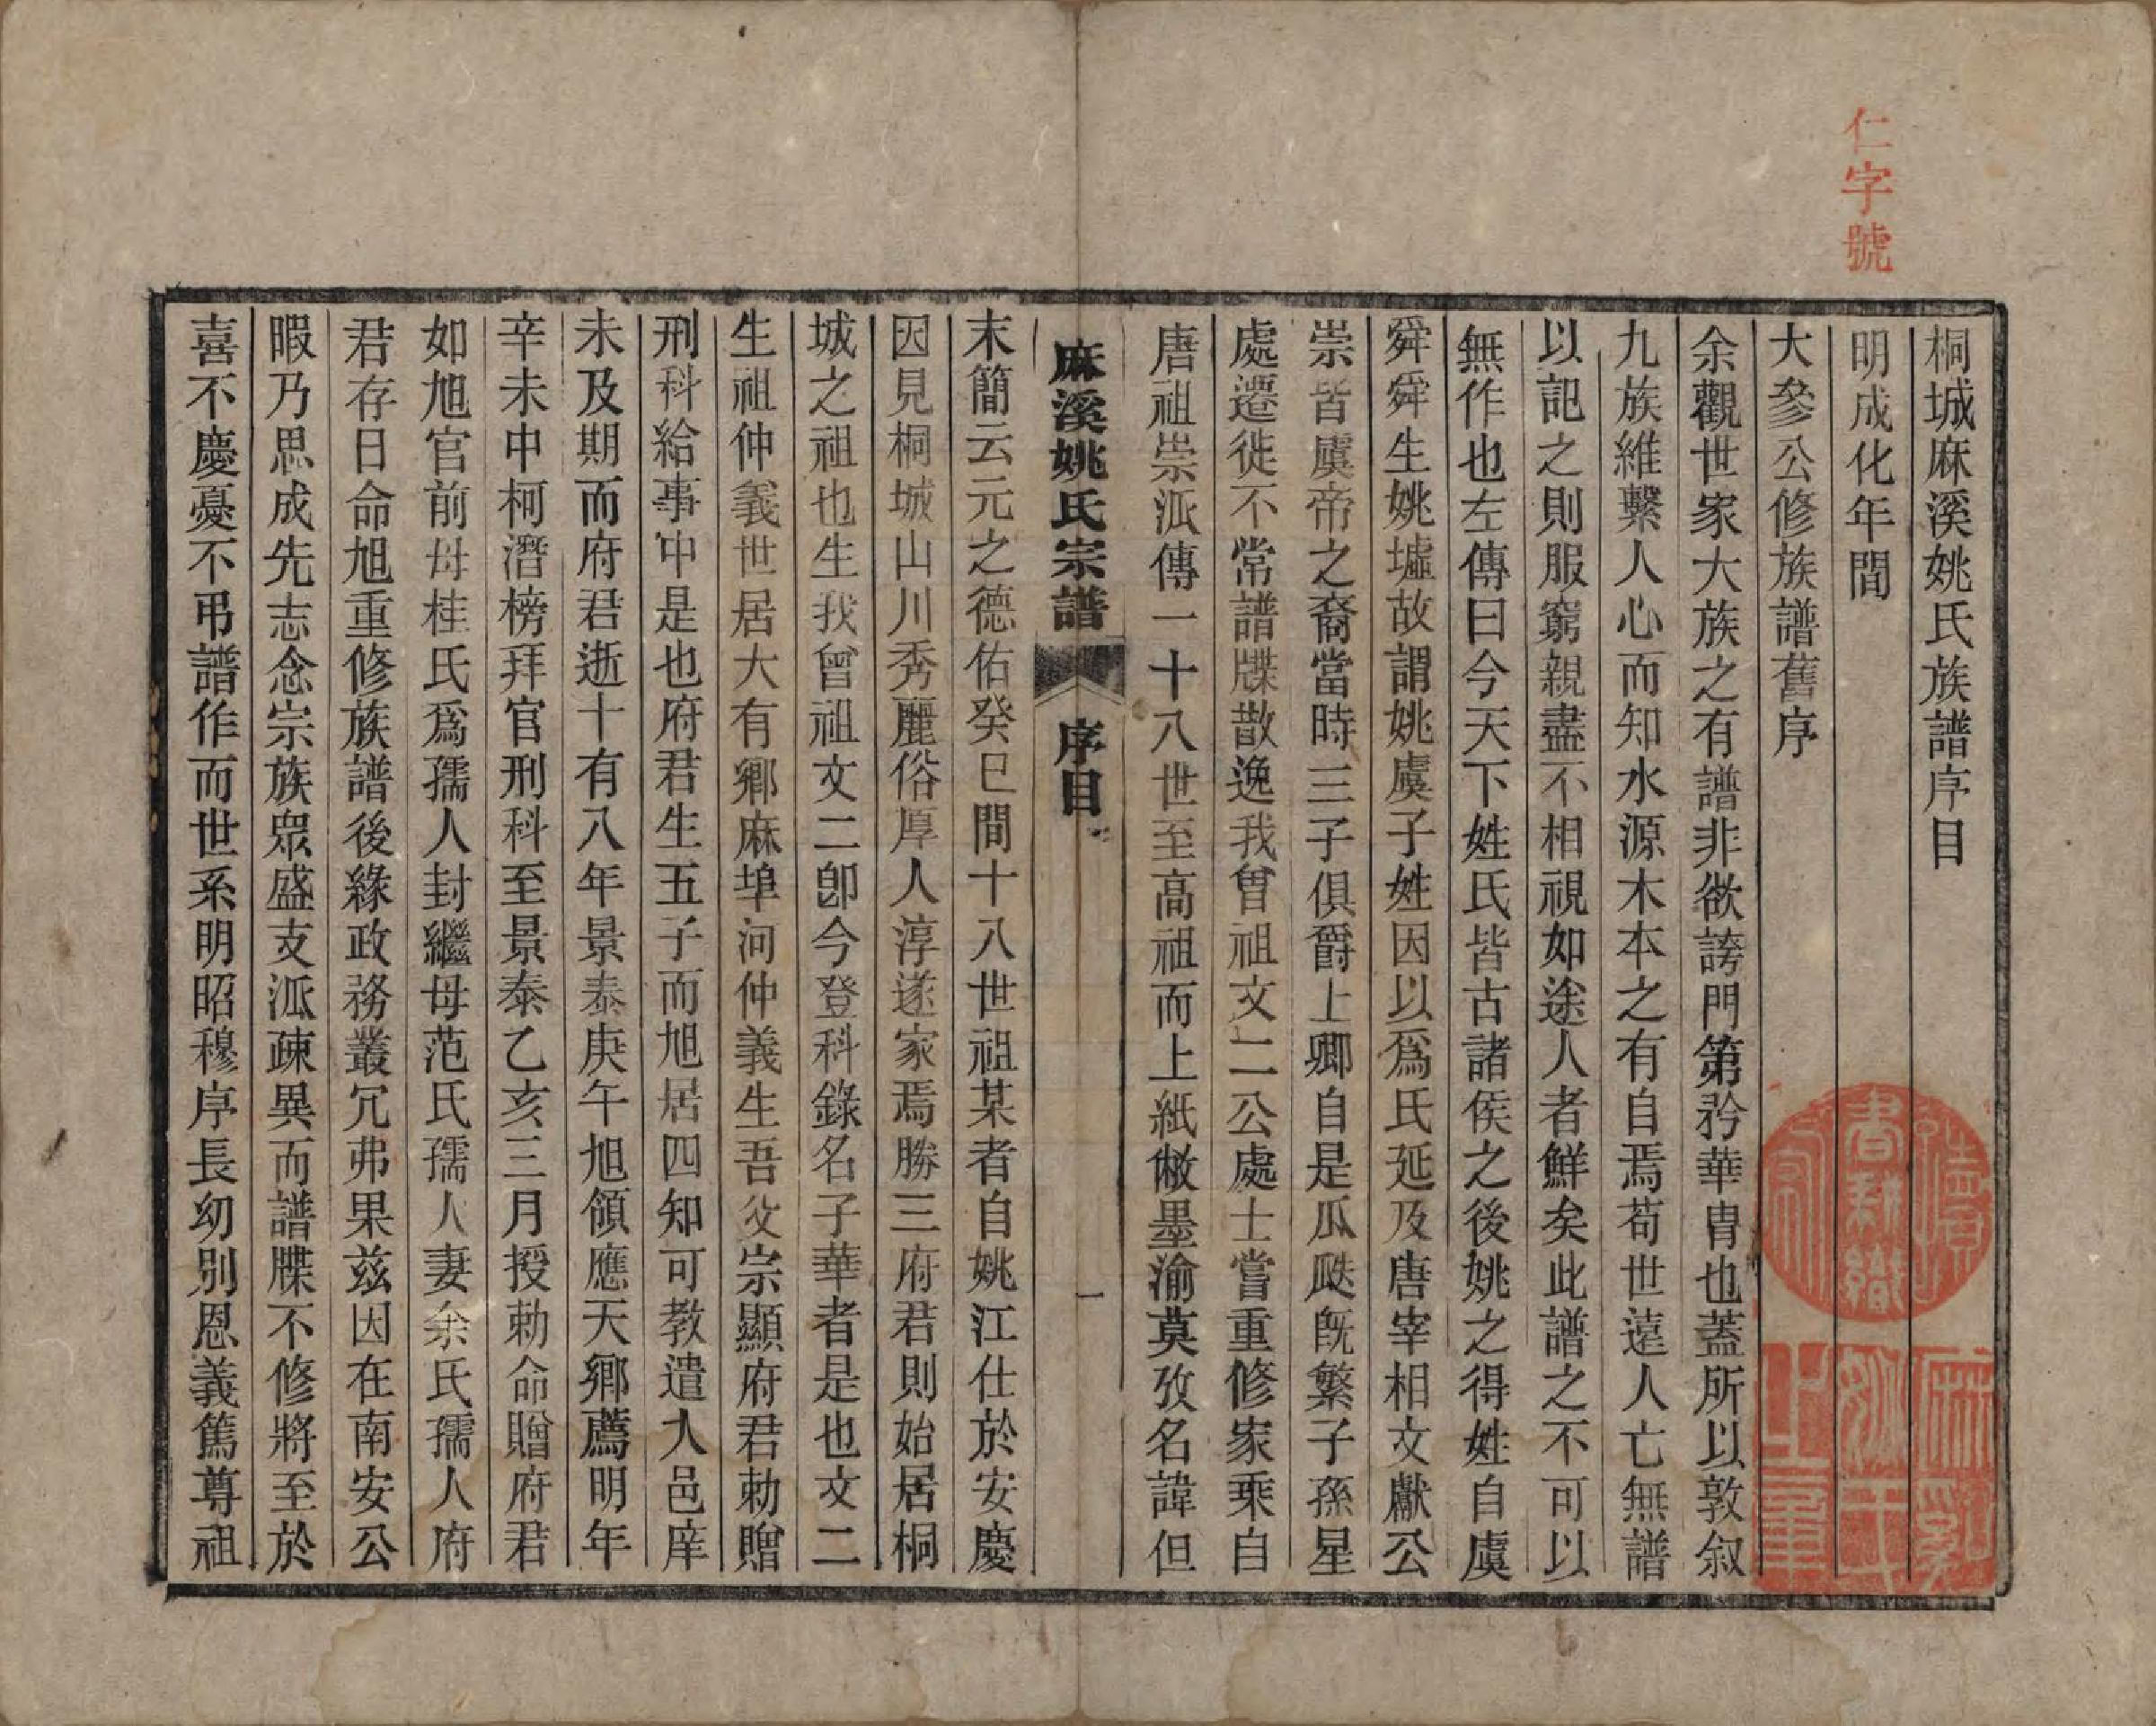 仁字號
桐城麻溪姚氏族譜序目
明成化年間
大參公修族譜舊序
余觀世家大族之有譜非欲誇門第矜華胄也蓋所以敦叙
九族維繫人心而知水源木本之有自焉苟世遠人亡無譜
以記之則服窮親盡不相視如途人者鮮矣此譜之不可以
無作也左傳曰今天下姓氏皆古諸侯之後姚之得姓自虞
舜舜生姚墟故謂姚虞子姓因以爲氏延及唐宰相文獻公
崇皆虞帝之裔當時三子俱爵上卿自是瓜瓞旣繁子孫星
處遷徙不常譜牒散逸我曾祖文二公處士嘗重修家乘自
唐祖崇派傳一十八世至高祖而上紙敝墨渝莫攷名諱但
麻溪姚氏宗譜 序目 一
末簡云元之德佑癸巳間十八世祖某者自姚江仕於安慶
因見桐城山川秀麗俗厚人淳遂家焉勝三府君則始居桐
城之祖也生我曾祖文二卽今登科錄名子華者是也文二
生祖仲義世居大有鄉麻埠河仲義生吾父宗顯府君勅贈
刑科給事中是也府君生五子而旭居四知可教遣入邑庠
未及期而府君逝十有八年景泰庚午旭領應天鄉薦明年
辛未中柯潛榜拜官刑科至景泰乙亥三月授勅命贈府君
如旭官前母桂氏爲孺人封繼母范氏孺人妻余氏孺人府
君存日命旭重修族譜後緣政務叢冗弗果兹因在南安公
暇乃思成先志念宗族眾盛支派疎異而譜牒不修將至於
喜不慶憂不弔譜作而世系明昭穆序長幼別恩義篤尊祖